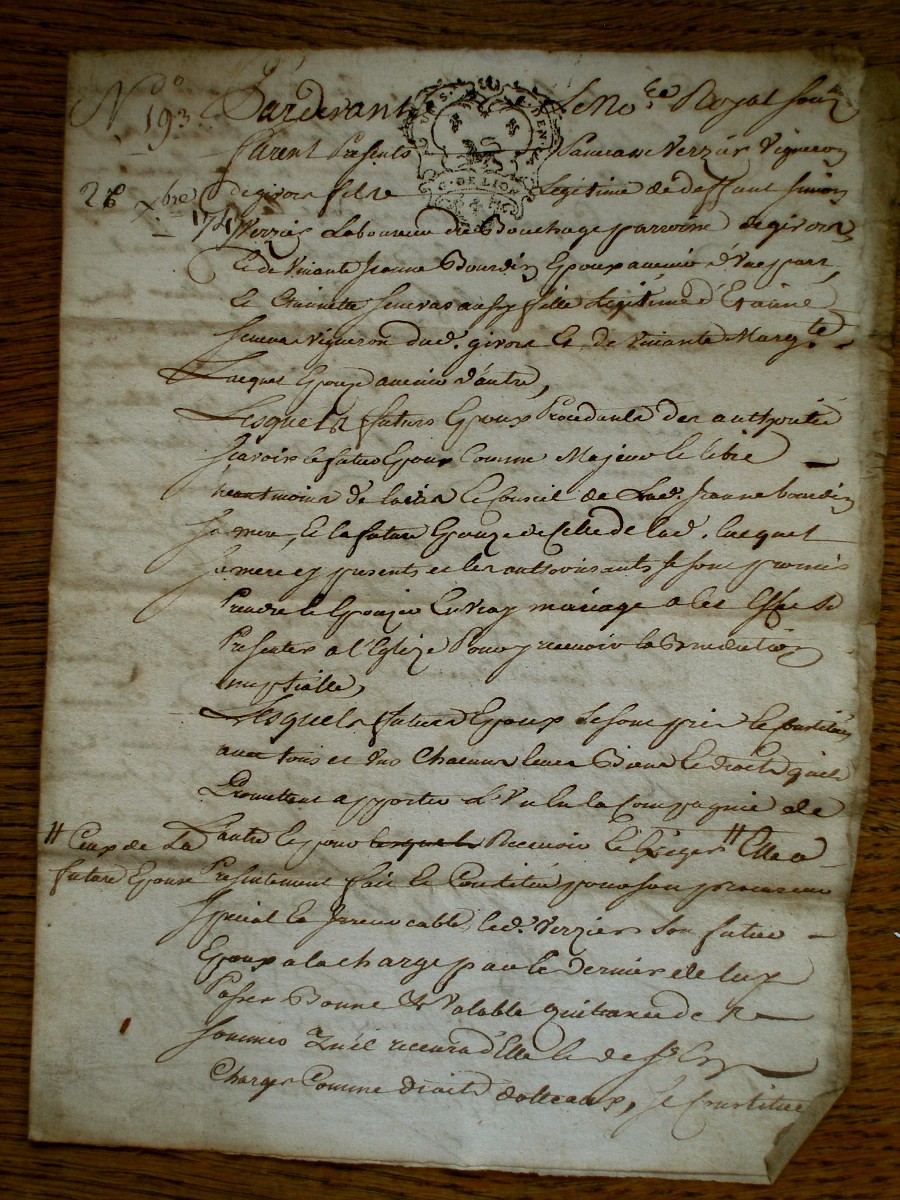 N° 193
28 xbre 174
Pardevant Le No.re Royal sous
signé Parent Presents Verzier Vigneron
de givors fils Legitime de deffunt simon
G. DE LION
Verzier Laboureur du Bouchage parroisse de givors
Et de vivante Jeanne Bourdin Epoux avenir d'Une part
Et aussy fille Legitime d'Etainé
vigneron dud. givors Et de vivante Marg.te
Lacquet Epouze avenir d'autre,
Lesquels futurs Epoux Procedants des authorités
sçavoir le futur Epoux Comme Majeur Et libre
neantmoins de l'avis Et Conseil de Lad. Jeanne bourdin
sa mere, Et la future Epouze de Celle de lad. lacquet
sa mere cy presents et les authorisants se sont promis
Prendre Et Epouzer En vray mariage a cet Effet se
Presenter a l'Eglize Pour y recevoir la Benediction
nuptialle,
Lesquels futurs Epoux se sont pris Et Constitués
avec tous et uns Chacuns leurs Biens Et Droits quils
Promettent apporter L'Un En la Compagnie de
L'autre Et pour lesquels Recevoir Et Exiger // Elle a
// Ceux de La future Epouse
Presentement fait Et Constitué pour son procureur
special Et Irrevocable led. Verzier son futur
Epoux a la charge par le Dernier de luy
Passer Bonne Et Valable quittance de
sommes qu'il recevra d'Elle Et de s'En
Charger Comme Droits dotteaux, se Constitue